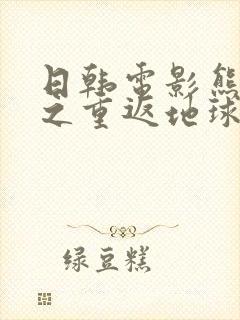 日韩電影熊
之重返地球
绿豆糕